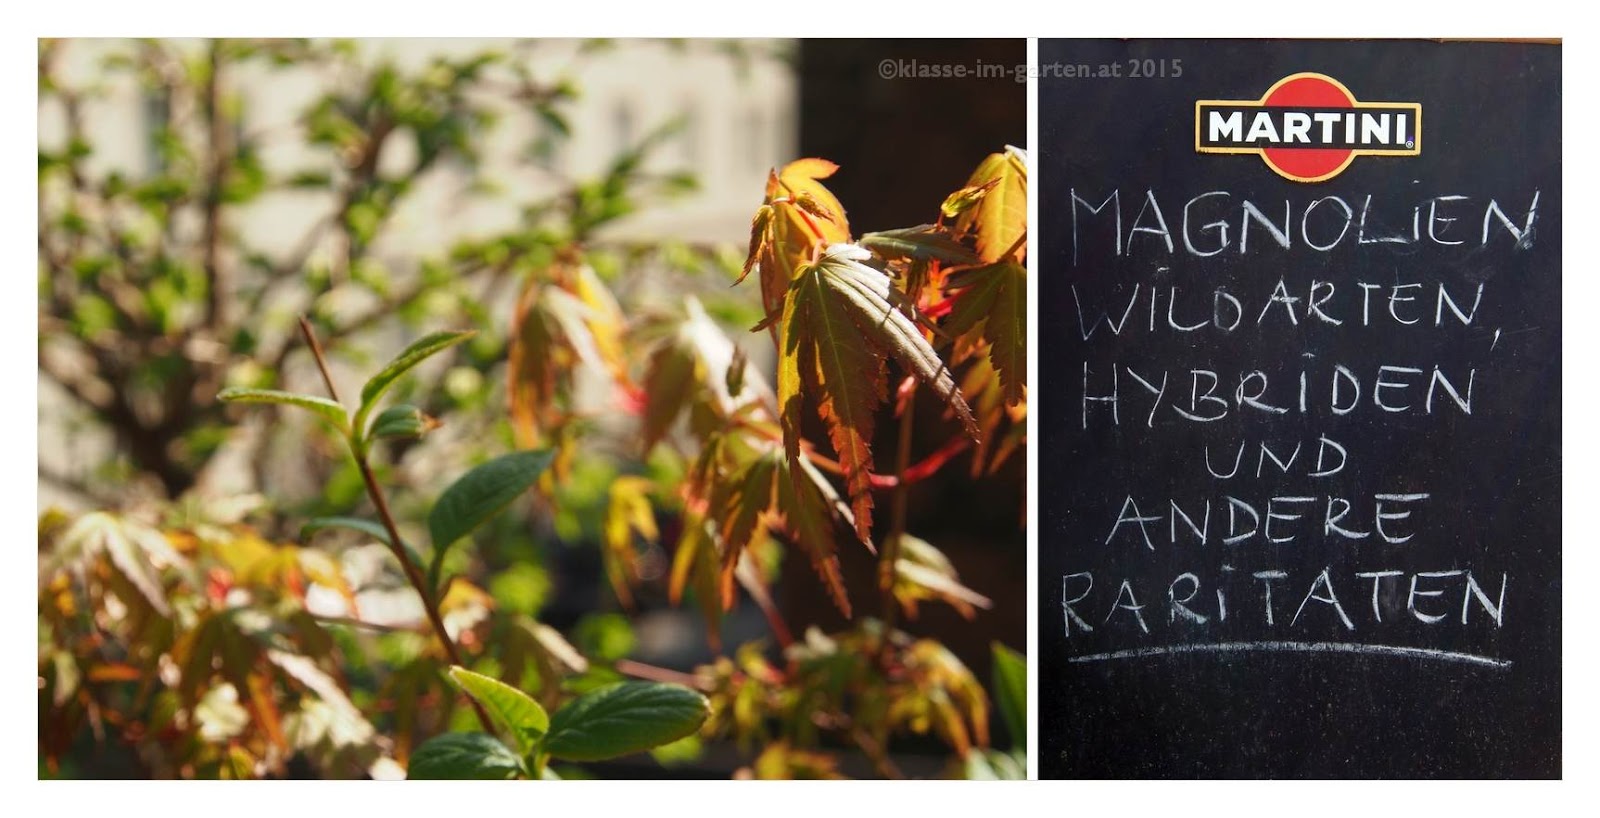 ©klasse-im-garten.at 2015
MARTINI®
MAGNOLiEN
WiLDARTEN,
HYBRiDEN
UND
ANDERE
RARiTÄTEN